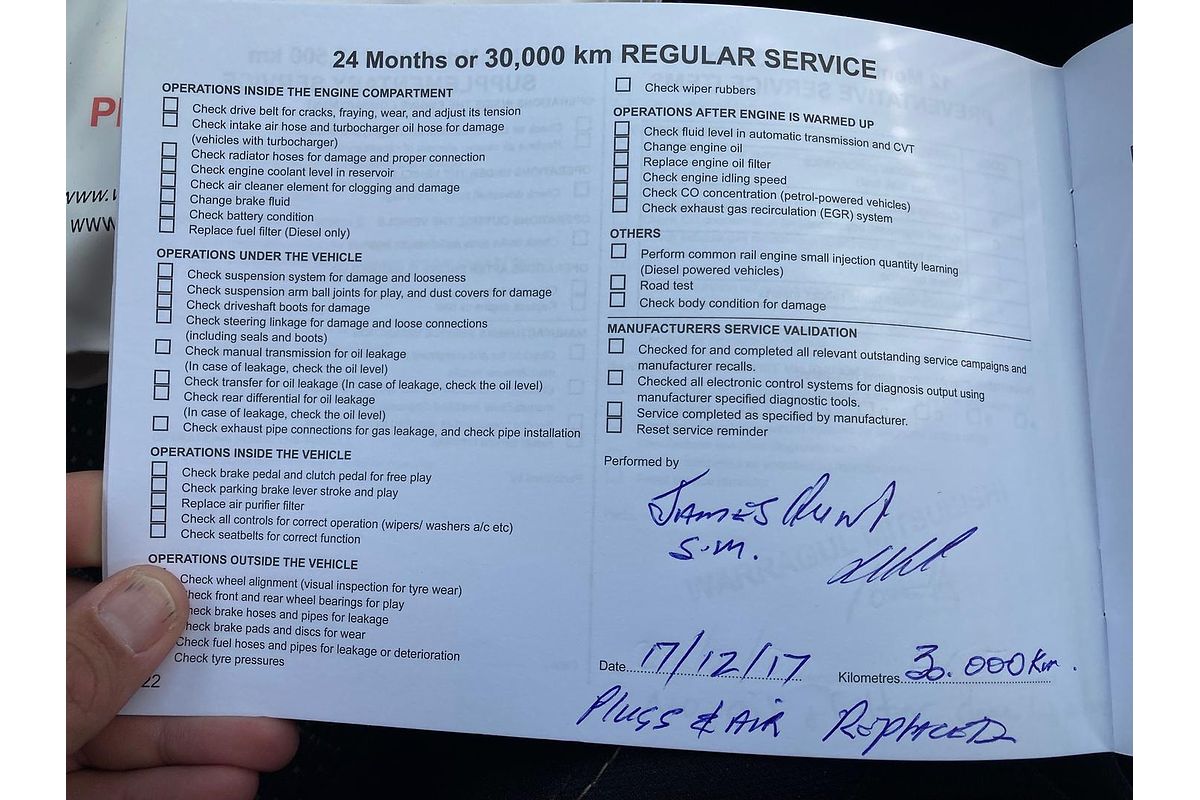 24 Months or 30,000 km REGULAR SERVICE
OPERATIONS INSIDE THE ENGINE COMPARTMENT
Check drive belt for cracks, fraying, wear, and adjust its tension
Check intake air hose and turbocharger oil hose for damage
(vehicles with turbocharger)
Check radiator hoses for damage and proper connection
Check engine coolant level in reservoir
Check air cleaner element for clogging and damage
Change brake fluid
Check battery condition
Replace fuel filter (Diesel only)
OPERATIONS UNDER THE VEHICLE
Check suspension system for damage and looseness
Check suspension arm ball joints for play, and dust covers for damage
Check driveshaft boots for damage
Check steering linkage for damage and loose connections
(including seals and boots)
Check manual transmission for oil leakage
(In case of leakage, check the oil level)
Check transfer for oil leakage (In case of leakage, check the oil level)
Check rear differential for oil leakage
(In case of leakage, check the oil level)
Check exhaust pipe connections for gas leakage, and check pipe installation
OPERATIONS INSIDE THE VEHICLE
Check brake pedal and clutch pedal for free play
Check parking brake lever stroke and play
Replace air purifier filter
Check all controls for correct operation (wipers/ washers a/c etc)
Check seatbelts for correct function
OPERATIONS OUTSIDE THE VEHICLE
Check wheel alignment (visual inspection for tyre wear)
heck front and rear wheel bearings for play
heck brake hoses and pipes for leakage
heck brake pads and discs for wear
Check fuel hoses and pipes for leakage or deterioration
Check tyre pressures
22
Check wiper rubbers
OPERATIONS AFTER ENGINE IS WARMED UP
Check fluid level in automatic transmission and CVT
Change engine oil
Replace engine oil filter
Check engine idling speed
Check CO concentration (petrol-powered vehicles)
Check exhaust gas recirculation (EGR) system
OTHERS
Perform common rail engine small injection quantity learning
(Diesel powered vehicles)
Road test
Check body condition for damage
MANUFACTURERS SERVICE VALIDATION
Checked for and completed all relevant outstanding service campaigns and
manufacturer recalls.
Checked all electronic control systems for diagnosis output using
manufacturer specified diagnostic tools.
Service completed as specified by manufacturer.
Reset service reminder
Performed by
JAMES Hunt
S.M.
Date 17/12/17 Kilometres 30.000 Km.
Plugs & AIR REPLACED